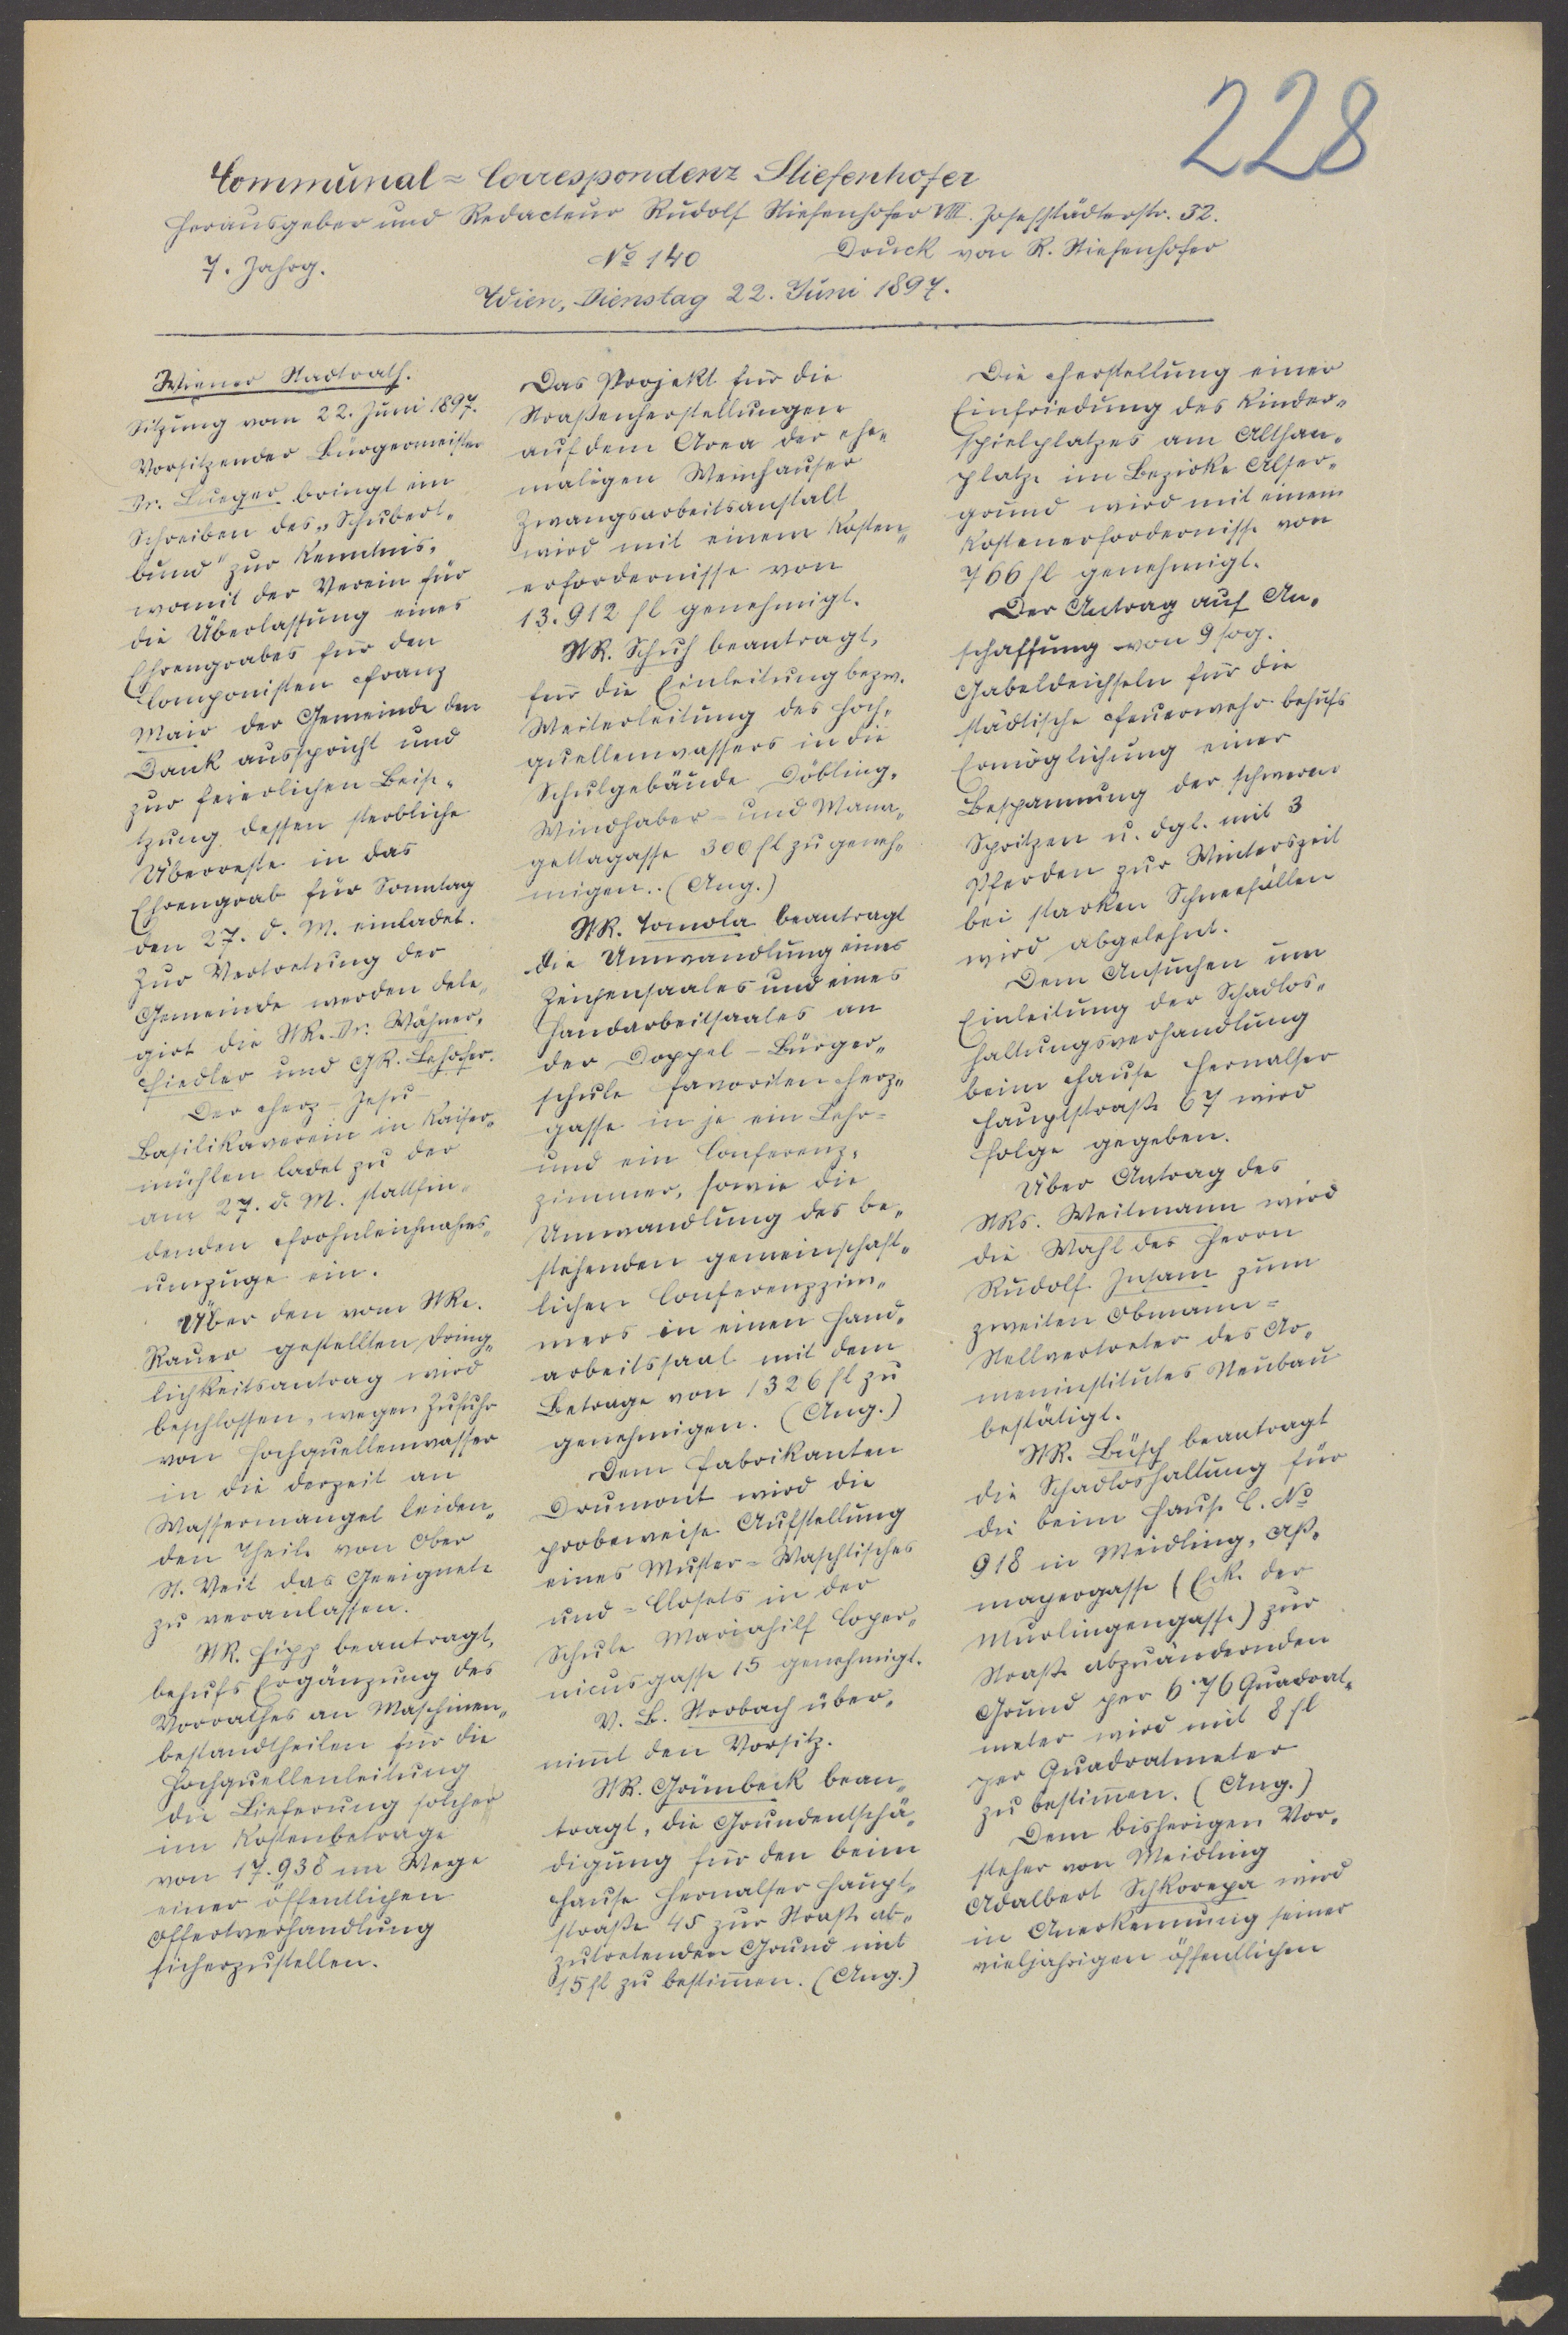 228
Communal-Correspondenz Stiefenhofer
Herausgeber und Redacteur Rudolf Stiefenhofer VIII. Josefstädterstr. 32.
7. Jahrg. No 140 Druck von R. Stiefenhofer
Wien, Dienstag 22. Juni 1897.
Wiener Stadtrath.
Sitzung vom 22. Juni 1897.
Vorsitzender Bürgermeister
Dr. Lueger bringt ein
Schreiben des "Schubert-
bund" zur Kenntnis,
womit der Verein für
die Überlassung eines
Ehrengrabes für den
Componisten Franz
Mair der Gemeinde den
Dank ausspricht und
zur feierlichen Beise-
tzung dessen sterbliche
Überreste in das
Ehrengrab für Sonntag
den 27. d. M. einladet.
Zur Vertretung der
Gemeinde werden dele-
girt die StR. Dr. Wähner,
Fiedler und GR. Lehofer.
Der Herz-Jesu-
Basilikaverein in Kaiser-
mühlen ladet zu der
am 27. d. M. stattfin-
denden Frohnleichnahms-
umzuge ein.
Über den vom StR.
Rauer gestellten Dring-
lichkeitsantrag wird
beschlossen, wegen Zufuhr
von Hochquellenwasser
in die derzeit an
Wassermangel leiden-
den Theile von Ober
St. Veit das Geeignete
zu veranlassen.
StR. Hipp beantragt,
behufs Ergänzung des
Vorrathes an Maschinen-
bestandtheilen für die
Hochquellenleitung
die Lieferung solcher
im Kostenbetrage
von 17.938 im Wege
einer öffentlichen
Offertverhandlung
sicherzustellen.
Das Projekt für die
Straßenherstellungen
auf dem Area der ehe-
maligen Weinhauser
Zwangsarbeitsanstalt
wird mit einem Kosten-
erfordernisse von
13.912 fl genehmigt.
StR. Schuh beantragt,
für die Einleitung bezw.
Weiterleitung des Hoch-
quellenwassers in die
Schulgebäude Döbling,
Windhaber- und Mana-
gettagasse 300 fl zu geneh-
migen. (Ang.)
StR. Tomola beantragt
die Umwandlung eines
Zeichensaales und eines
Handarbeitsaales an
der Doppel-Bürger-
schule Favoriten Herz-
gasse in je ein Lehr-
und ein Conferenz-
zimmer, sowie die
Umwandlung des be-
stehenden gemeinschaft-
lichen Conferenzzim-
mers in einen Hand-
arbeitssaal mit dem
Betrage von 1326 fl zu
genehmigen. (Ang.)
Dem Fabrikanten
Drumont wird die
probeweise Aufstellung
eines Muster-Waschtisches
und -Closets in der
Schule Mariahilf Coper-
nicusgasse 15 genehmigt.
V. B. Strobach über-
nimmt den Vorsitz.
StR. Grünbeck bean-
tragt, die Grundentschä-
digung für den beim
Hause Hernalser Haupt-
straße 45 zur Straße ab-
zutretenden Grund mit
15 fl zu bestimmen. (Ang.)
Die Herstellung einer
Einfriedung des Kinder-
spielplatzes am Althan-
platze im Bezirke Alser-
grund wird mit einem
Kostenerfordernisse von
766 fl genehmigt.
Der Antrag auf An-
schaffung von 9 sog.
Gabeldeichseln für die
städtische Feuerwehr behufs
Ermöglichung einer
Bespannung der schweren
Spritzen u. dgl. mit 3
Pferden zur Winterszeit
bei starken Schneefällen
wird abgelehnt.
Dem Ansuchen um
Einleitung der Schadlos-
haltungsverhandlung
beim Hause Hernalser
Hauptstraße 67 wird
Folge gegeben.
Über Antrag des
StRs. Weitmann wird
die Wahl des Herrn
Rudolf Insam zum
zweiten Obmann-
Stellvertreter des Ar-
meninstitutes Neubau
bestätigt.
StR. Büsch beantragt
die Schadloshaltung für
die beim Hause C. No
918 in Meidling, Aß-
mayergasse (Ecke der
Murlingengasse) zur
Straße abzuändernden
Grund per 6.76 Quadrat-
meter wird mit 8 fl
per Quadratmeter
zu bestimmen. (Ang.)
Dem bisherigen Vor-
steher von Meidling
Adalbert Schkorepa wird
in Anerkennung seiner
vieljährigen öffentlichen